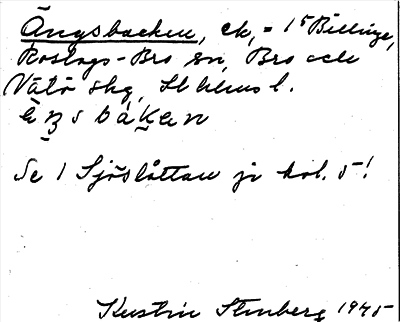 Ängsbacken, ck, = 1⁵ Billinge,
Roslags-Bro sn, Bro och
Vätö skg, Sthlms l.
ä̀ŋsbàkan
Se 1 Sjöslåttan ji kol. 5!
Kerstin Stenberg 1945